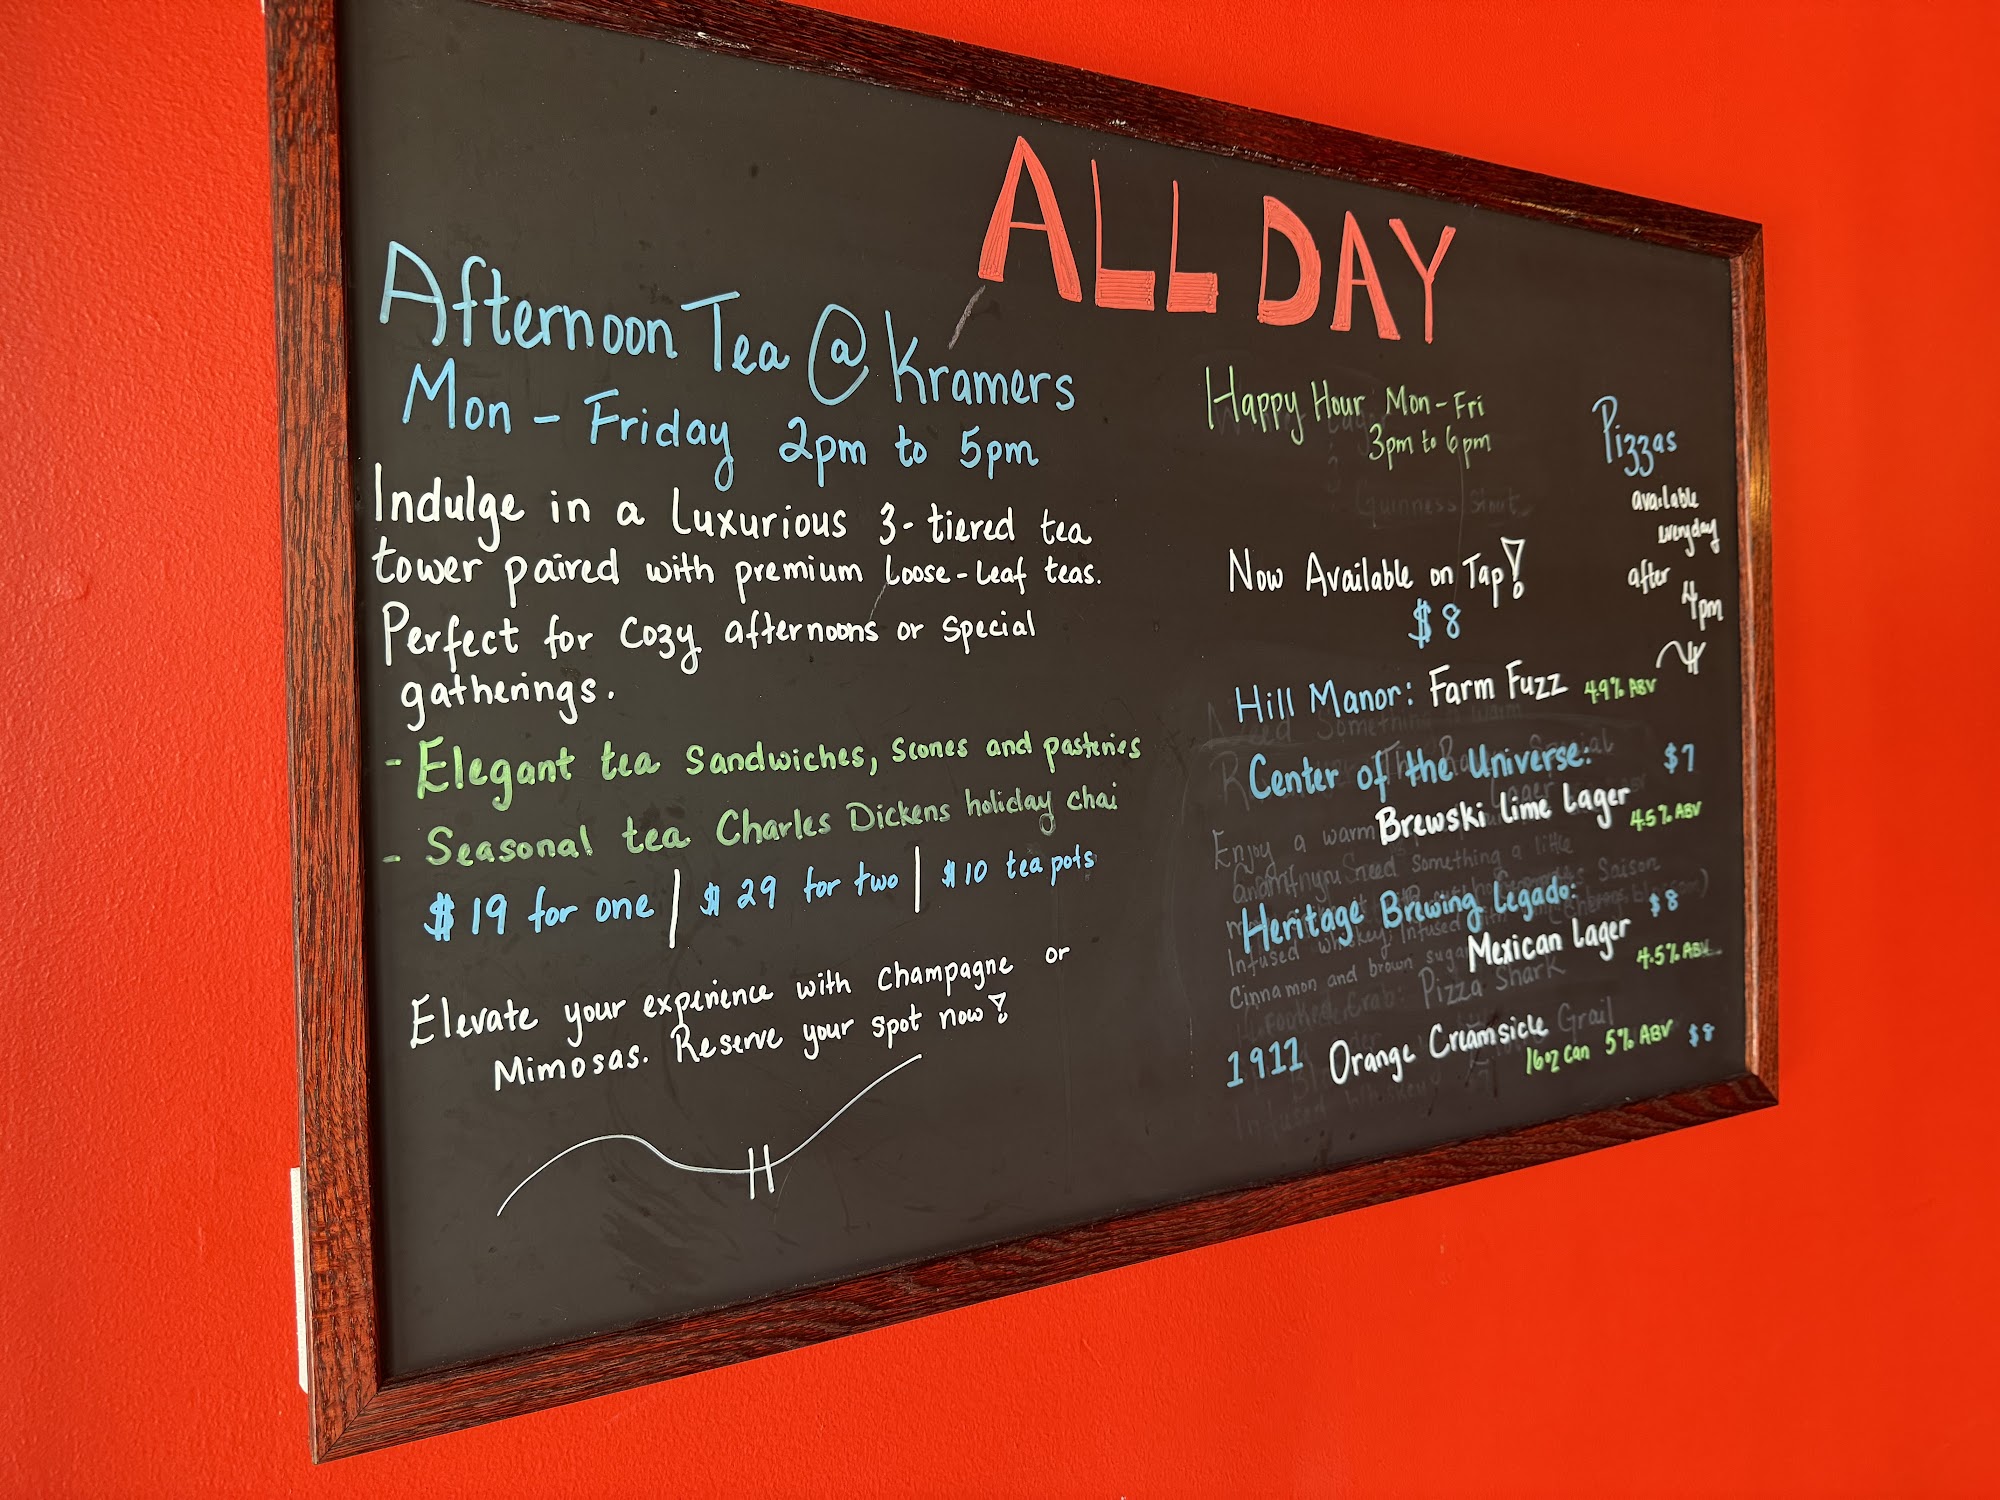 ALL DAY
Afternoon Tea @ Kramers
Mon - Friday 2pm to 5pm
Indulge in a Luxurious 3-tiered tea
tower paired with premium Loose-Leaf teas.
Perfect for cozy afternoons or special
gatherings.
- Elegant tea sandwiches, scones and pastenies
- Seasonal tea Charles Dickens holiday chai
$19 for one | $29 for two | $10 tea pots
Elevate your expenience with Champagne or
Mimosas. Reserve your spot now!
Happy Hour Mon - Fri
3pm to 6pm
Guinness Stout
Now Available on Tap!
$8
Hill Manor: Farm Fuzz 4.9% ABV
Center of the Universe: $7
Brewski Lime Lager 4.5% ABV
Heritage Brewing Legado: $8
Mexican Lager 4.5% ABV
Cinnamon and brown sugar
Pizza Shark
1911 Orange Creamsicle Grail
16oz can 5% ABV $8
Pizzas
available
everyday
after
4pm